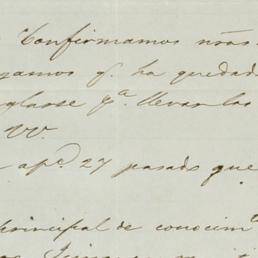 Confirmamos nrãs.
gamos q. ha quedad
glarse pª. llevar las
VV.
apº. 27 pasado que
principal de conocimtº